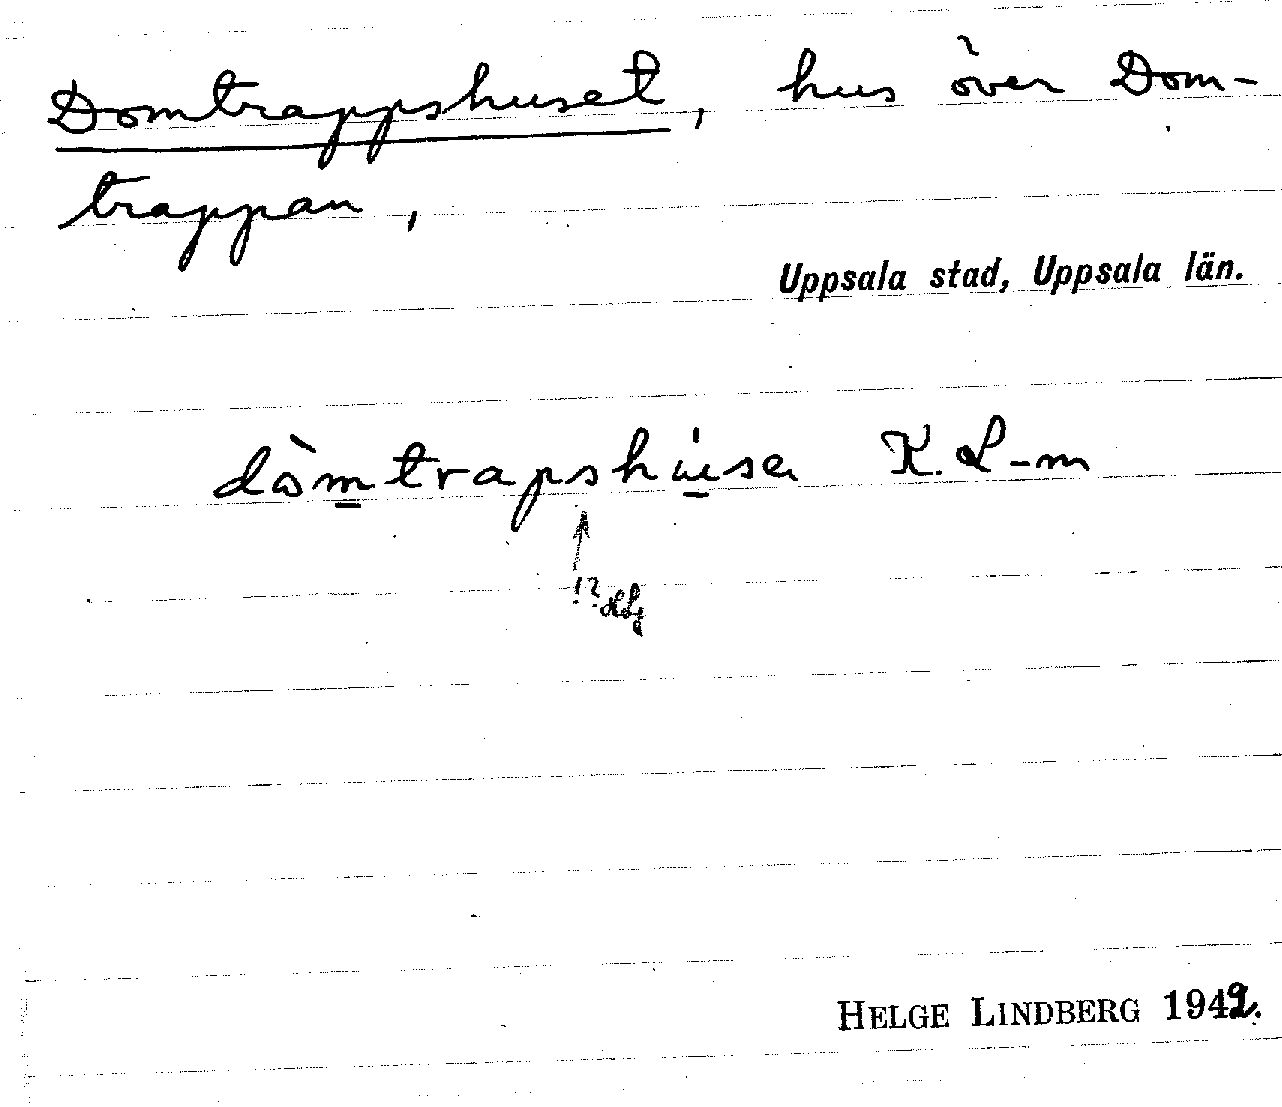 Domtrappshuset, hus över Dom-
trappan,
Uppsala stad, Uppsala län.
dòmtrapshúsə K. L-m
!?
HELGE LINDBERG 1942.